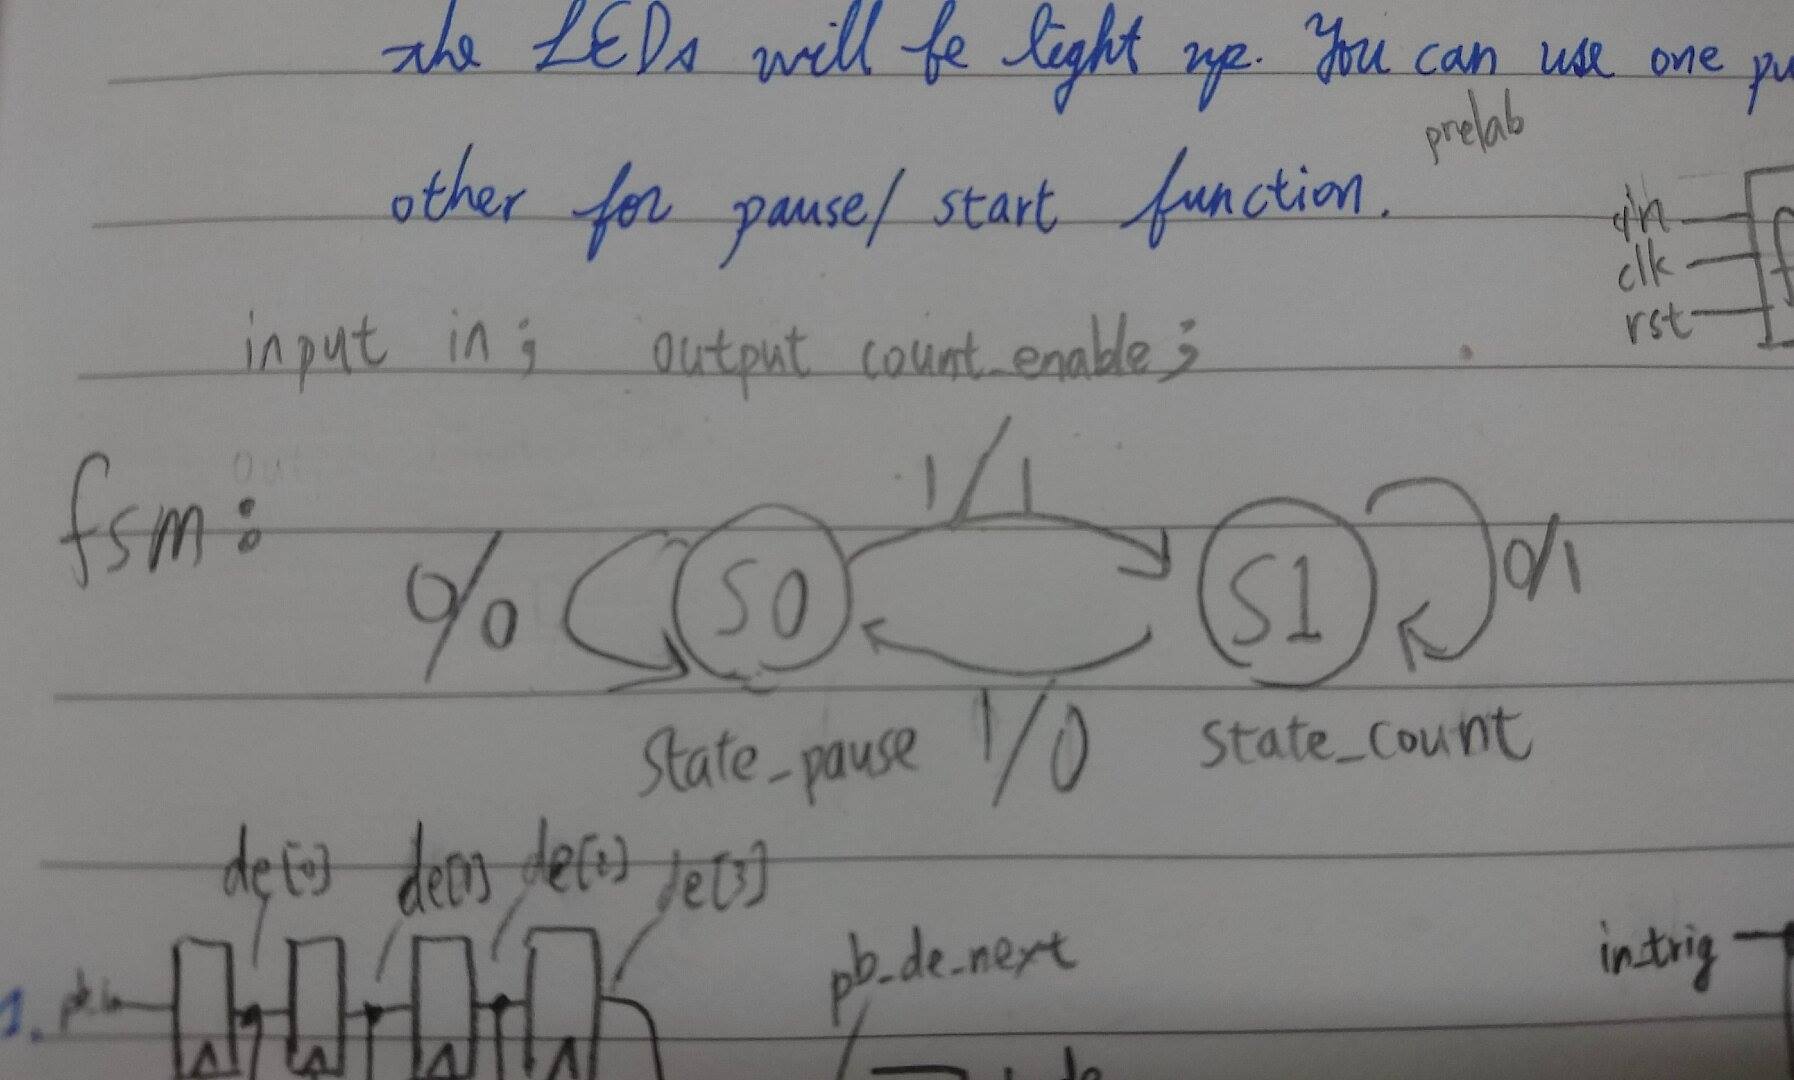 the LEDs will be light up. You can use one pu
prelab
other for pause/ start function.
in
clk
rst
input in; output count_enable;
fsm:
1/1
0/0 S0 S1 0/1
state_pause 1/0 state_count
de[0] de[1] de[2] de[3]
pb_de_next
in_trig
1.